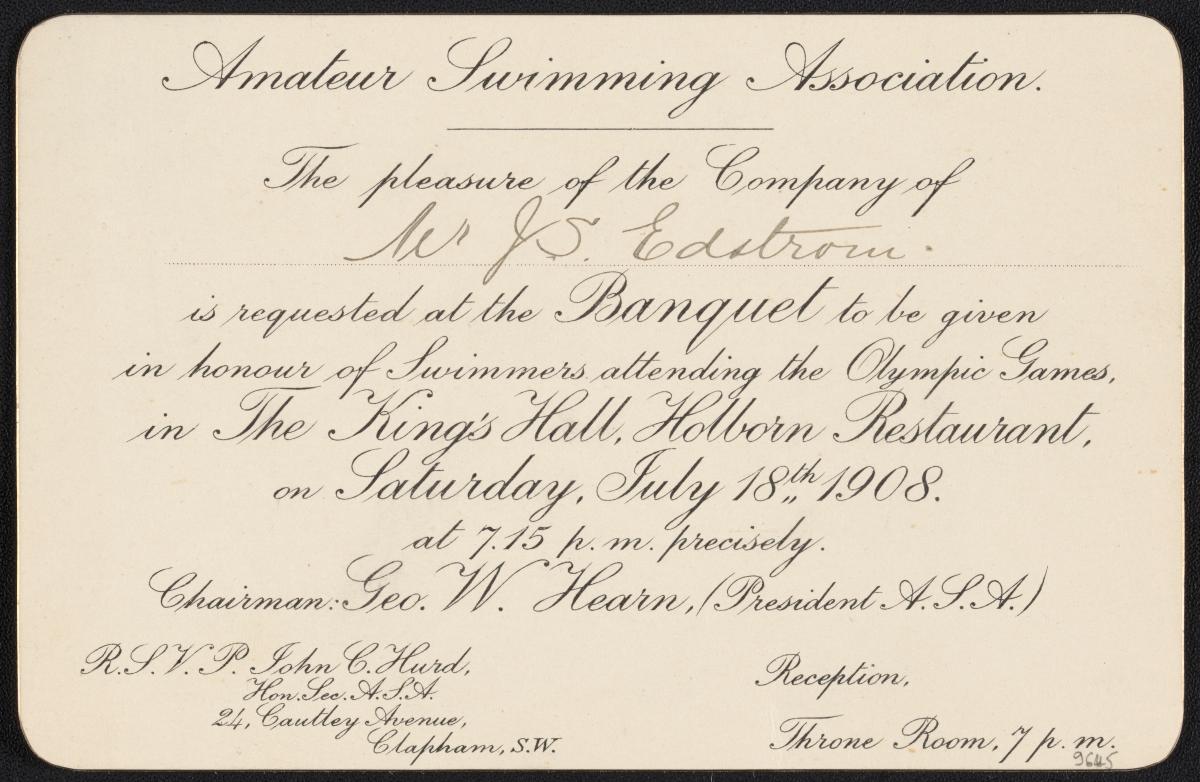 Amateur Swimming Association.
The pleasure of the Company of
Mr J.S. Edstrom.
is requested at the Banquet to be given
in honour of Swimmers attending the Olympic Games,
in The King's Hall, Holborn Restaurant,
on Saturday, July 18th, 1908.
at 7.15 p.m. precisely.
Chairman: Geo. W. Hearn, (President A.S.A.)
R.S.V.P. John C. Hurd,
Hon. Sec. A.S.A.
24, Cautley Avenue,
Clapham, S.W.
Reception,
Throne Room, 7 p.m.
9645